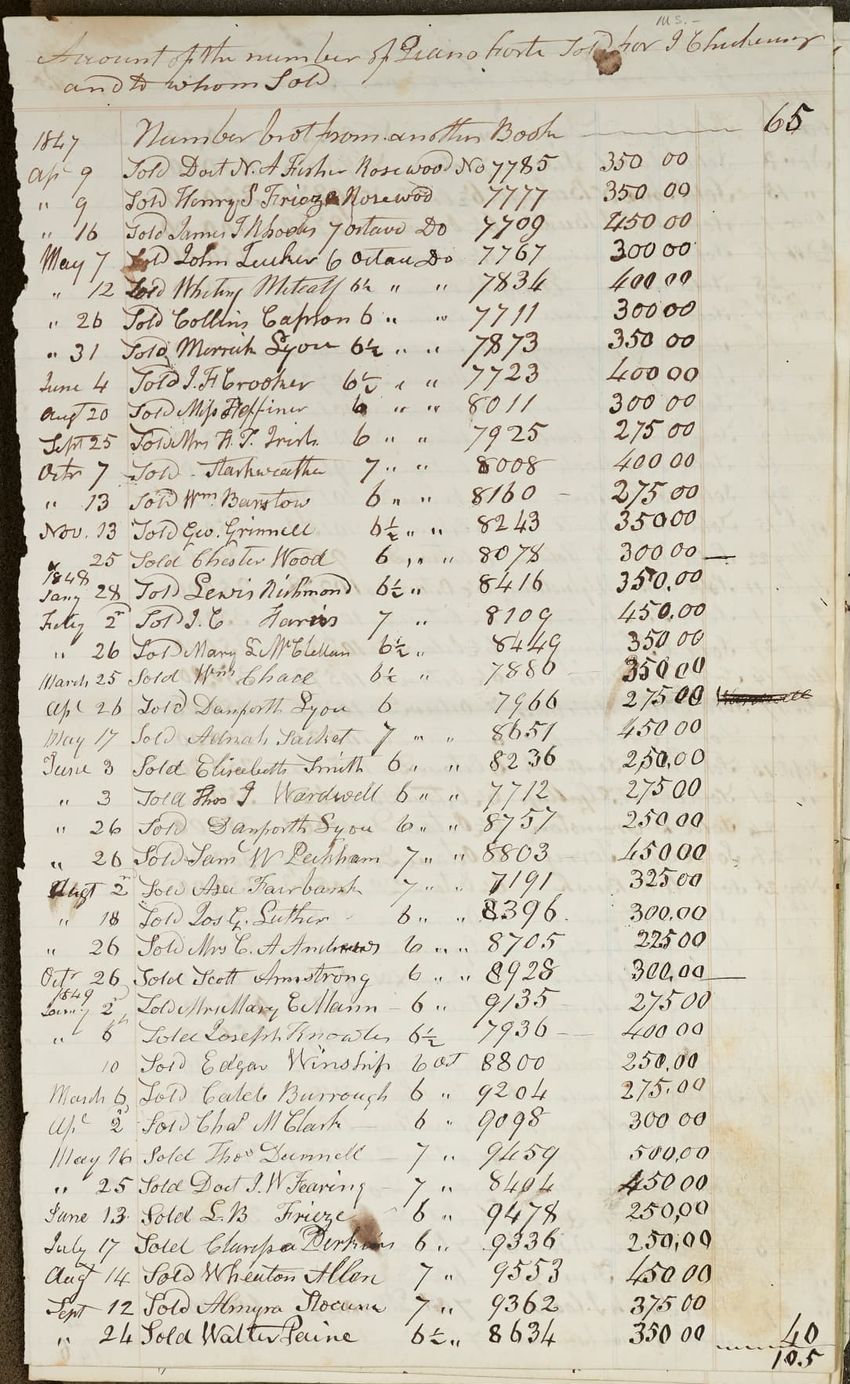 MS.-
Account of the number of Piano Forte Sold for J Chickering
and to whom Sold
Number brot from another Book 65
1847
Apl 9 Sold Doct N. A Fisher Rosewood No 7785 350 00
" 9 Sold Henry S Frieze Rosewod 7777 350 00
" 16 Sold James T Rhodes 7 octave Do 7709 450 00
May 7 Sold John Tucker 6 Octau Do 7767 300 00
" 12 Sold Whiting Metcalf 6½ " " 7834 400 00
" 26 Sold Collins Capron 6 " " 7711 300 00
" 31 Sold Merrick Lyou 6½ " " 7873 350 00
June 4 Sold J. F Crooker 6½ " " 7723 400 00
Augt 20 Sold Miss 6 " " 8011 300 00
Sept 25 Sold Mrs H. T. Irish 6 " " 7925 275 00
Octr 7 Sold Starkweather 7 " " 8008 400 00
" 13 Sold Wm Barstow 6 " " 8160 - 275 00
Nov. 13 Sold Geo. Grinnell 6½ " " 8243 350 00
" 25 Sold Chester Wood 6 " " 8078 300 00
1848
Jany 28 Sold Lewis Richmond 6½ " 8416 350.00
Feby 2 Sold J. C Harris 7 " 8109 450.00
" 26 Sold Mary L McClellan 6½ " 8449 350 00
March 25 Sold Wm Chace 6½ " 7880 350 00
Apl 26 Sold Danforth Lyou 6 7966 275 00
May 17 Sold Adnah Sacket 7 " " 8651 450 00
June 3 Sold Elisebeth Smith 6 " " 8236 250,00
" 3 Sold Thos J Wardwell 6 " " 7712 275 00
" 26 Sold Danforth Lyou 6 " " 8757 250 00
" 26 Sold Saml W Peckham 7 " " 8803 450 00
Augt 2 Sold Asa Fairbank 7 " " 7191 325 00
" 18 Sold Jos G. Luther 6 " " 8396. 300,00
" 26 Sold Mrs C. A Andrews 6 " " 8705 225 00
Octr 26 Sold Scott Armstrong 6 " " 8928 300,00
1849
Jany 2 Sold Mrs Mary E Mann - 6 " 9135 275 00
" 6 Sold Joseph Knowles 6½ 7936 400 00
10 Sold Edgar Winship 6 OT 8800 250,00
March 6 Sold Caleb Burrough 6 " 9204 275.00
Apl 2 Sold Chas M Clark 6 " 9098 300 00
May 16 Sold Thos Dunnell 7 " 9459 500,00
" 25 Sold Doct J. W Fearing 7 " 8404 450 00
June 13 Sold L. B Frieze 6 " 9478 250,00
July 17 Sold Clarissa Perkins 6 " 9336 250,00
Augt 14 Sold Wheaton Allen 7 " 9553 450 00
Sept 12 Sold Almyra Slocum 7 " 9362 375 00
" 24 Sold Walter Paine 6½ " 8634 350 00 40
10.5